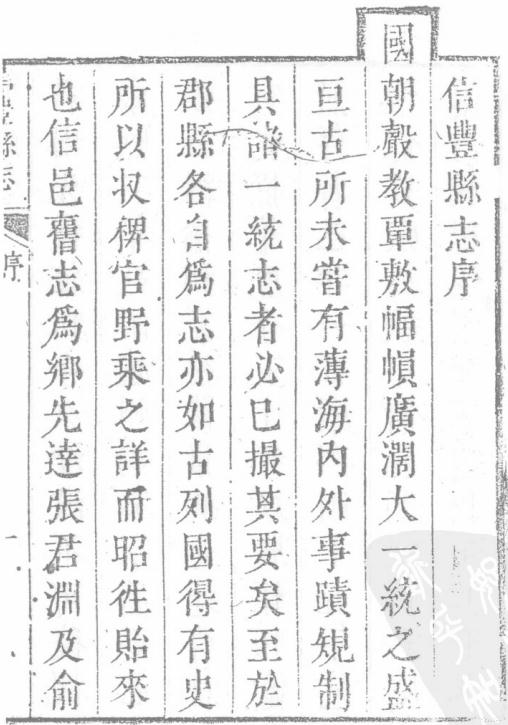 信豐縣志序
國朝聲教覃敷幅幀廣濶大一統之盛
亘古所未嘗有薄海内外事蹟規制
具諸一統志者必已撮其要矣至於
郡縣各自爲志亦如古列國得有史
所以收稗官野乘之詳而昭徃貽來
也信邑舊志爲鄉先達張君淵及俞
信豐縣志
序